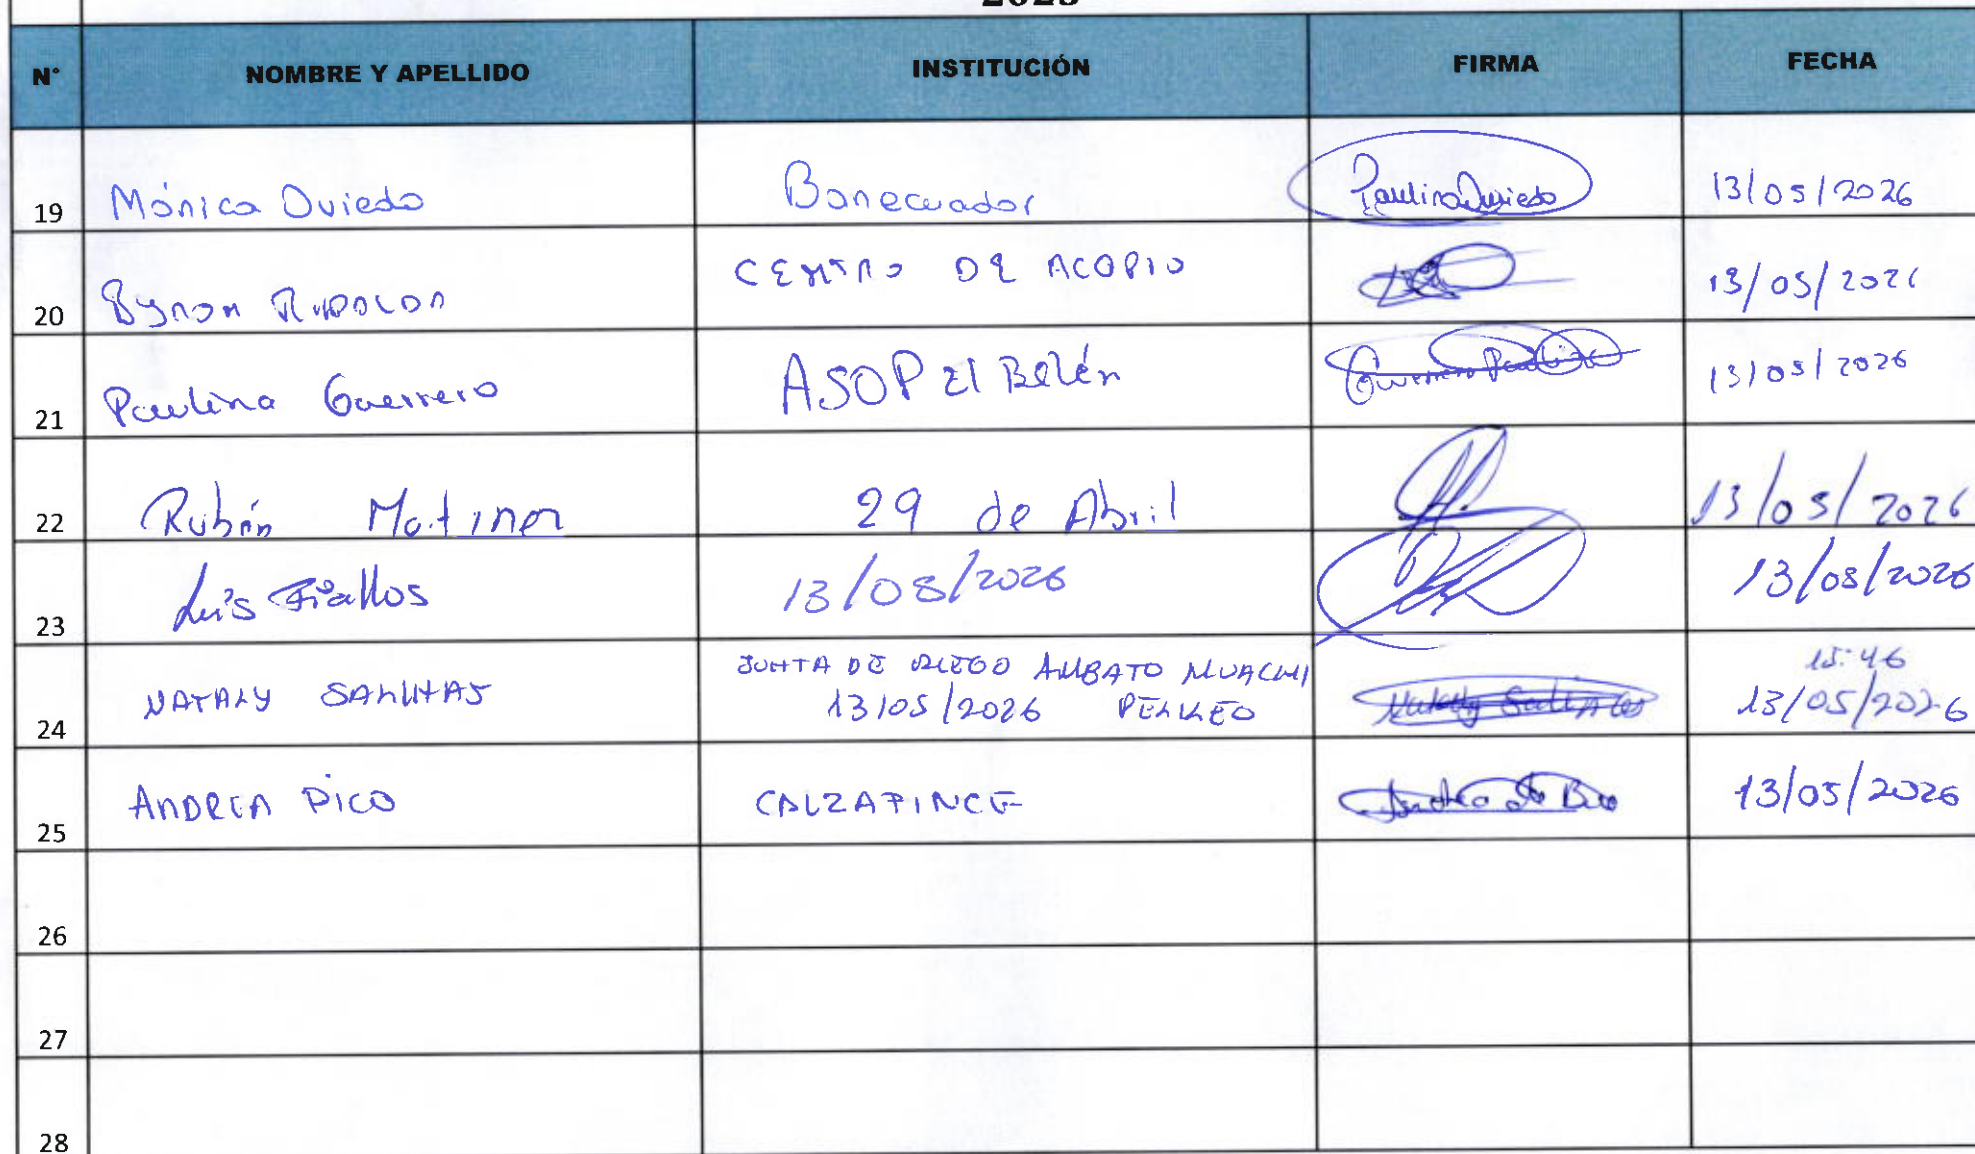 N° NOMBRE Y APELLIDO INSTITUCIÓN FIRMA FECHA
19 Mónica Oviedo Banecuador Paulina Oviedo 13/05/2026
20 Byron CENTRO DE ACOPIO 13/05/2026
21 Paulina Guerrero ASOP El Belén Guerrero Paulina 13/05/2026
22 Rubén Martinez 29 de Abril 13/05/2026
23 Luis Fiallos 13/05/2026 13/05/2026
24 NATALY SALINAS JUNTA DE RIEGO AMBATO HUACHI 15:46
13/05/2026 PELILEO Nataly Salinas 13/05/2026
25 ANDREA PICO CALZAFINCE 13/05/2026
26
27
28